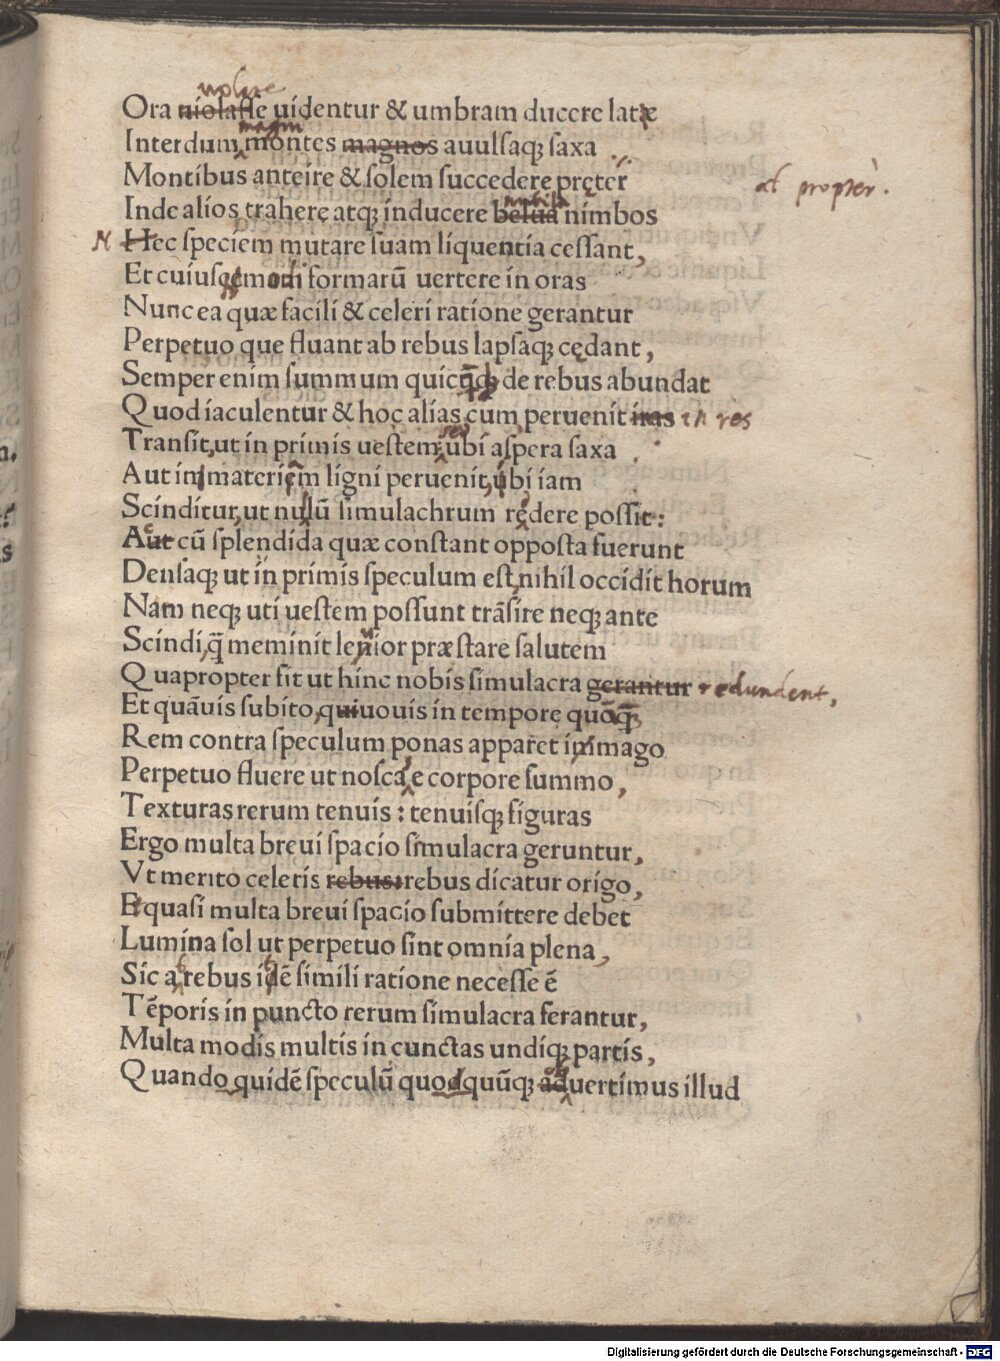 uolare
Ora uiolasse uidentur & umbram ducere latæ
magni
Interdum montes magnos auulsaq; saxa
Montibus anteire & solem succedere pręter
al propter.
nubila
Inde alios trahere atq; inducere belua nimbos
N Hec speciem mutare suam liquentia cessant,
Et cuiusce modi formarū uertere in oras
Nunc ea quæ facili & celeri ratione gerantur
Perpetuo que fluant ab rebus lapsaq; cędant,
Semper enim summum quicq̄d de rebus abundat
Quod iaculentur & hoc alias cum peruenit iras in res
Transit, ut in primis uestem, ubi aspera saxa
Aut in materiem ligni peruenit, ubi iam
Scinditur, ut nullū simulachrum redere possit:
Aut cū splendida quæ constant opposta fuerunt
Densaq; ut in primis speculum est, nihil occidit horum
Nam neq; uti uestem possunt trāsire neq; ante
Scindi, q̄ meminit leuior præstare salutem
Quapropter fit ut hinc nobis simulacra gerantur redundent,
Et quāuis subito, quiuouis in tempore quōq̄;
Rem contra speculum ponas apparet immago
Perpetuo fluere ut noscas e corpore summo,
Texturas rerum tenuis: tenuisq; figuras
Ergo multa breui spacio simulacra geruntur,
Vt merito celeris rebus: rebus dicatur origo,
Et quasi multa breui spacio submittere debet
Lumina sol ut perpetuo sint omnia plena,
Sic ab rebus itidē simili ratione necesse ē
Tēporis in puncto rerum simulacra ferantur,
Multa modis multis in cunctas undiq; partis,
Quandoquidē speculū quodquūq; aduertimus illud
Digitalisierung gefördert durch die Deutsche Forschungsgemeinschaft - DFG